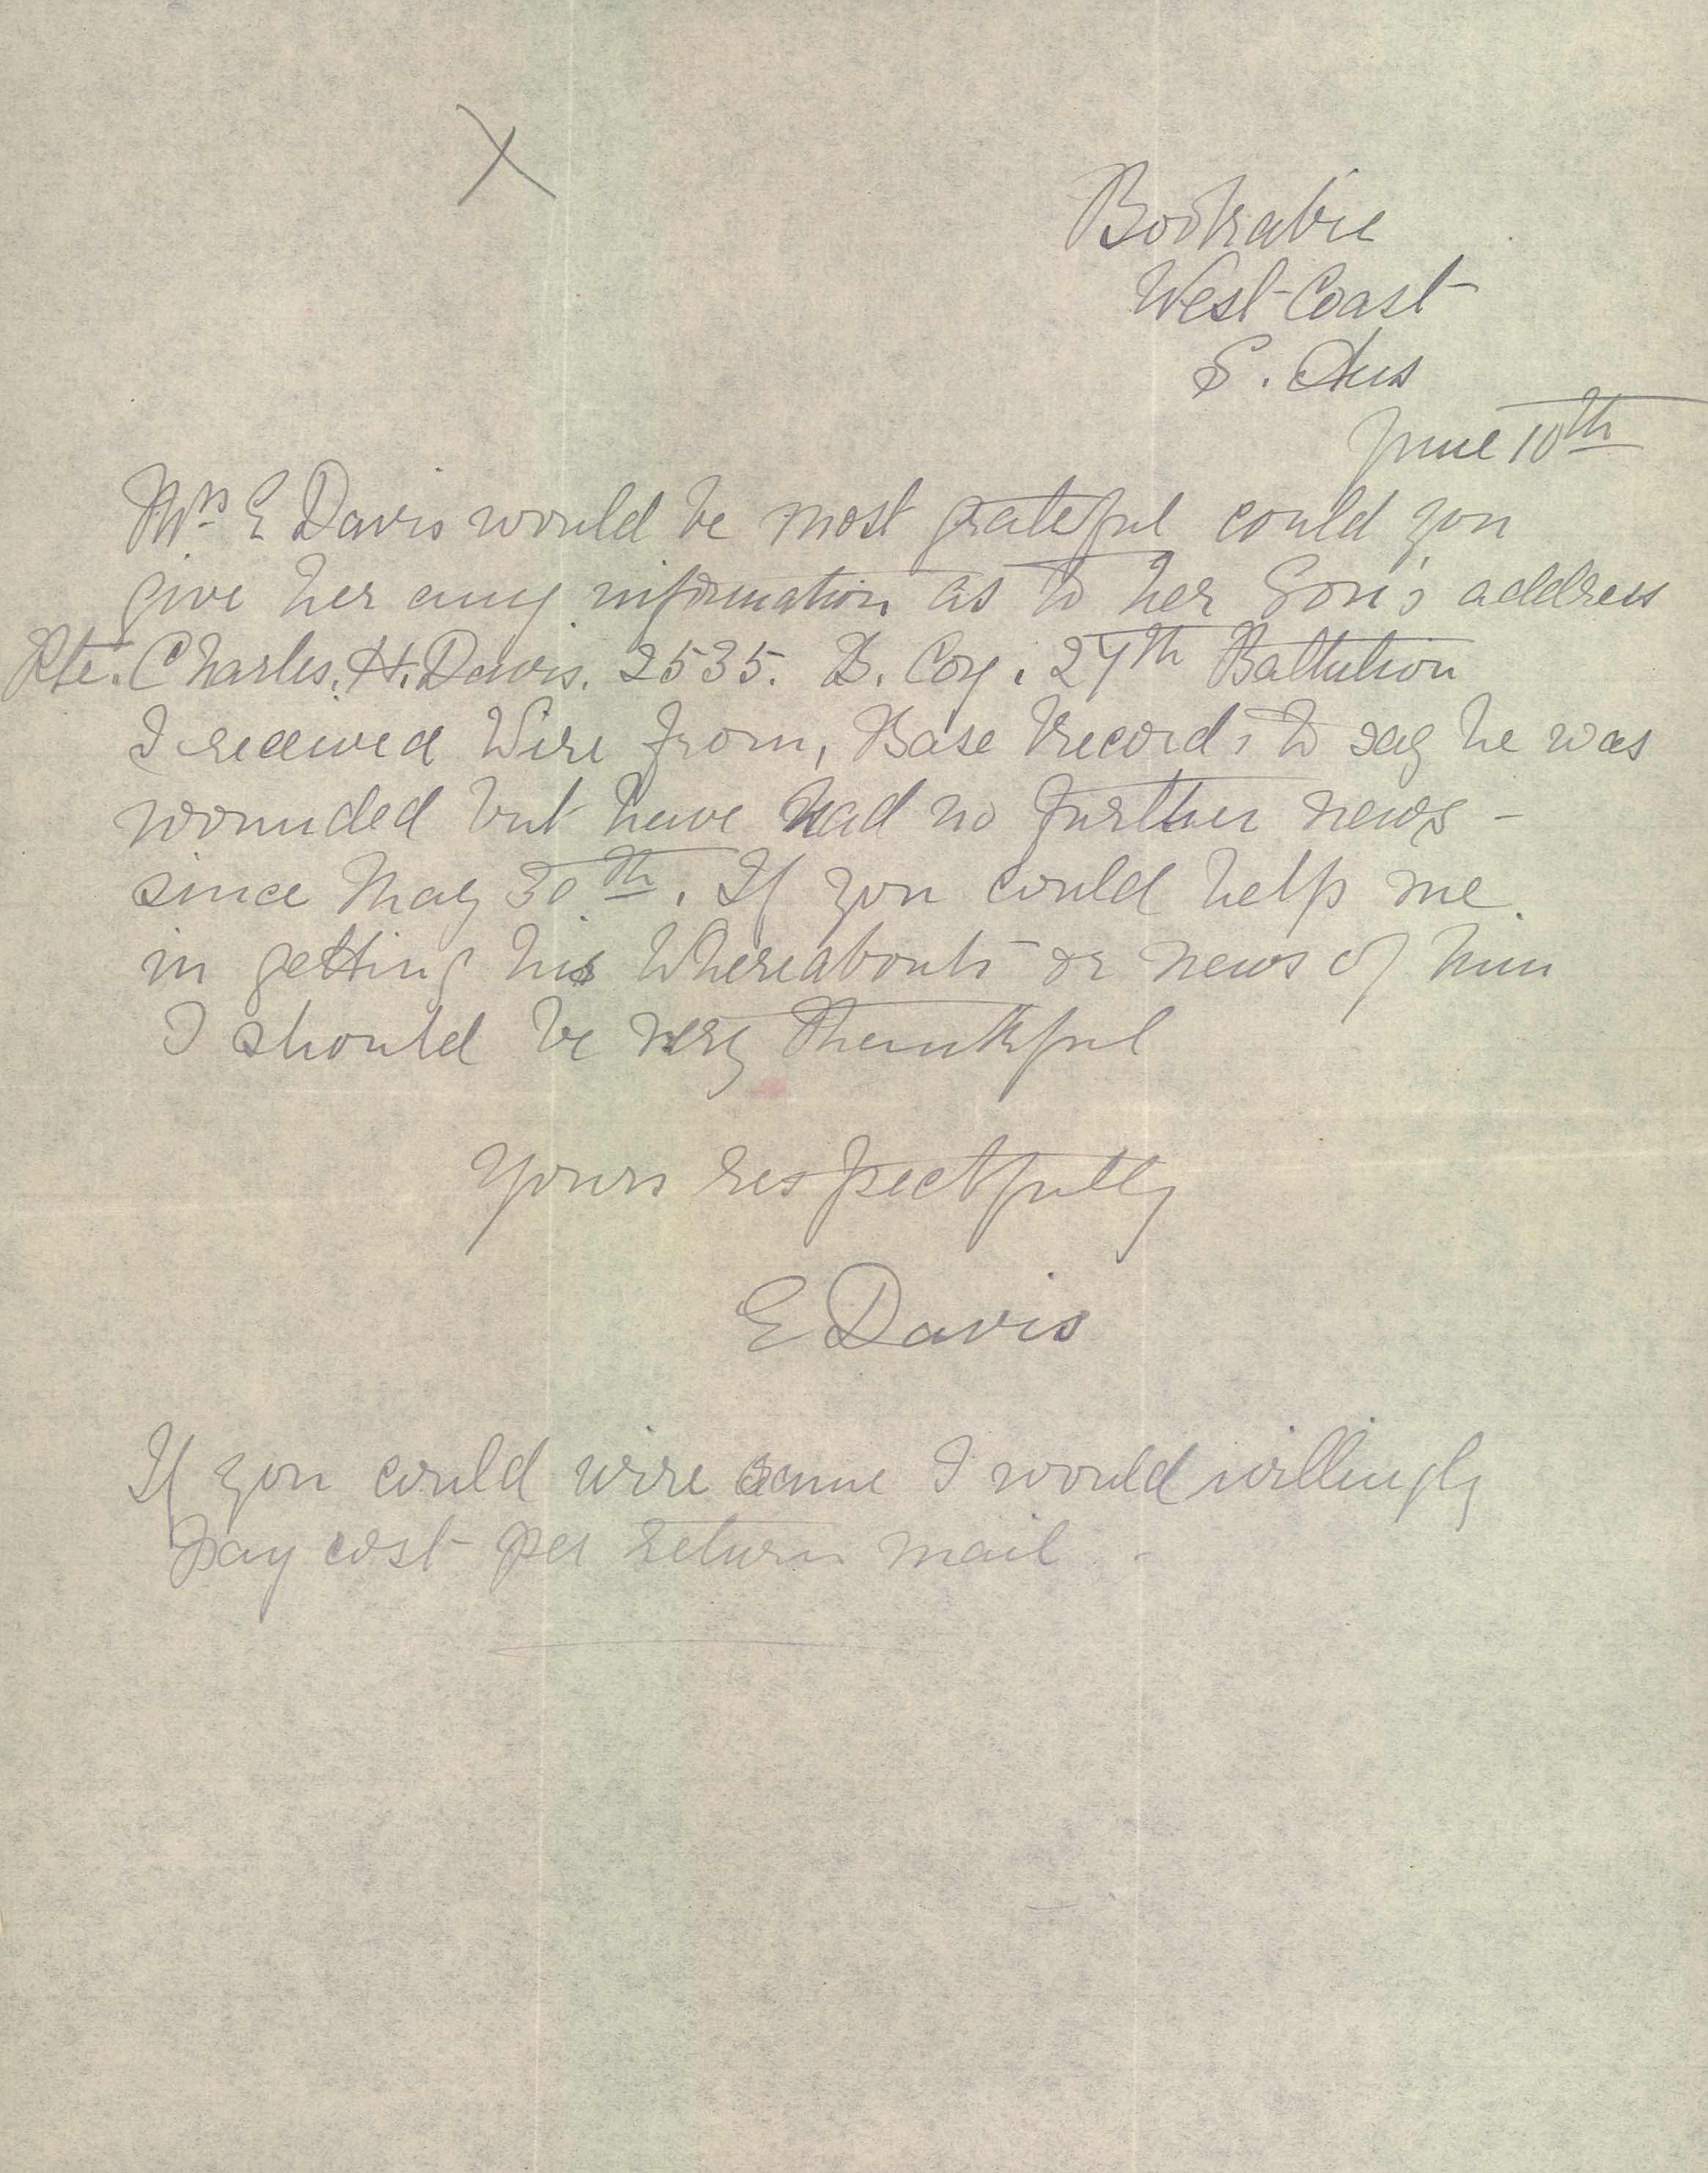 X
Bookabie
West Coast
S. Aus
June 10th
Mrs E Davis would be most grateful could you
give her any information as to her Son's address
Pte. Charles. H. Davis. 2535. D. Coy. 27th Battalion
I received Wire from, Base Records to say he was
wounded but have had no further news -
since May 30th. If you could help me.
in getting his Whereabouts or news of him
I should be very thankful
Yours respectfully
E Davis
If you could wire same I would willingly
pay cost per return mail -